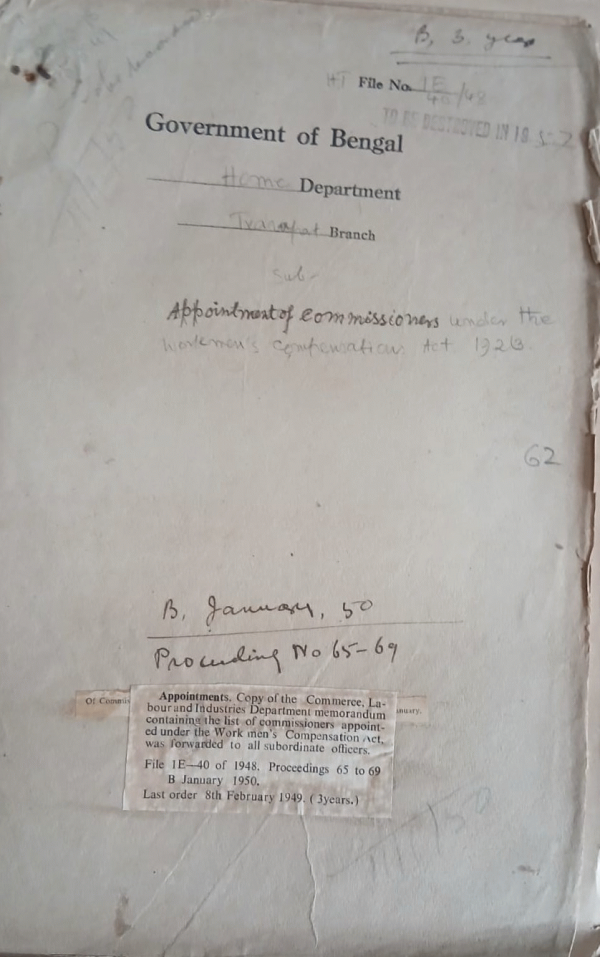 B, 3. year
File No. 1E/40/48
TO BE DESTROYED IN 195
Government of Bengal
Home Department
Branch
Sub-
Appointment of Commissioners under the
workmen's Compensation Act 1923.
62
B, January, 50
Proceeding No 65-69
Of Commis
Appointments. Copy of the Commerce, La-
bour and Industries Department memorandum
containing the list of commissioners appoint-
ed under the Work men's Compensation Act,
was forwarded to all subordinate officers.
File 1E—40 of 1948. Proceedings 65 to 69
B January 1950.
Last order 8th February 1949. (3years.)
anuary.